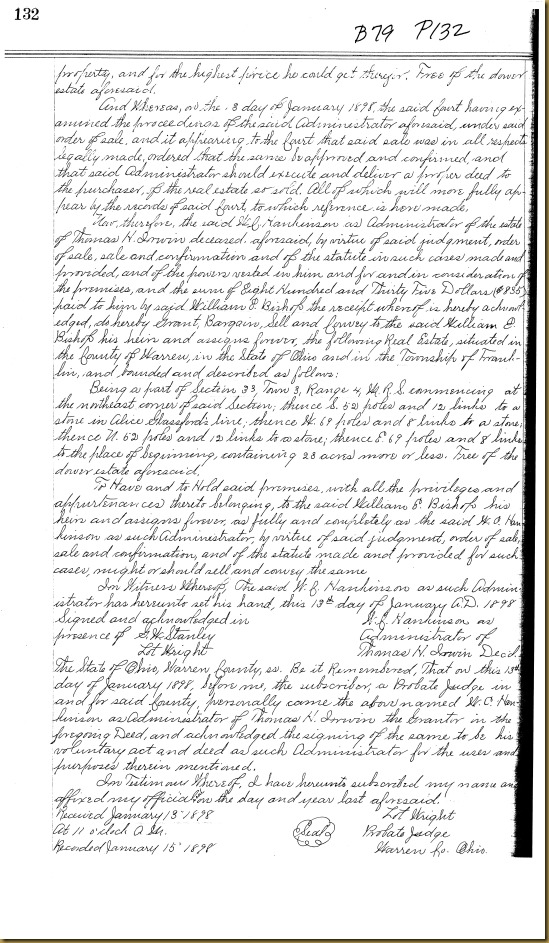 132
B79 P132
property, and for the highest price he could get therefor. Free of the dower
estate aforesaid.
And Whereas, on the 3 day of January 1898, the said Court having ex-
amined the proceedings of the said Administrator aforesaid, under said
order of sale, and it appearing to the Court that said sale was in all respects
legally made, ordered that the same be approved and confirmed, and
that said Administrator should execute and deliver a proper deed to
the purchaser, of the real estate so sold. All of which will more fully ap-
pear by the records of said Court, to which reference is here made.
Now, therefore, the said W.C. Hankinson as Administrator of the estate
of Thomas H. Irwin deceased aforesaid, by virtue of said judgment, order
of sale, sale and confirmation and of the statute in such cases made and
provided, and of the powers vested in him and for and in consideration of
the premises, and the sum of Eight Hundred and Thirty Five Dollars ($835)
paid to him by said William E. Bishop the receipt whereof is hereby acknowl
edged, do hereby Grant, Bargain, Sell and Convey to the said William E.
Bishop his heirs and assigns forever, the following Real Estate, situated in
the County of Warren, in the State of Ohio and in the Township of Frank-
lin, and bounded and described as follows:
Being a part of Section 33, Town 3, Range 4, M.R.S. commencing at
the northeast corner of said Section; thence S. 52 poles and 12 links to a
stone in Alice Glassford's line; thence W. 69 poles and 8 links to a stone;
thence N. 52 poles and 12 links to a stone; thence E 69 poles and 8 links
to the place of beginning, containing 23 acres more or less. Free of the
dower estate aforesaid.
To Have and to Hold said premises, with all the privileges and
appurtenances thereto belonging, to the said William E. Bishop his
heirs and assigns forever, as fully and completely as the said W.C. Han-
kinson as such Administrator, by virtue of said judgment, order of sale,
sale and confirmation, and of the statute made and provided for such
cases, might or should sell and convey the same.
In Witness Whereof, The said W.C. Hankinson as such Admin-
istrator has hereunto set his hand, this 13th day of January A.D. 1898
Signed and acknowledged in W.C. Hankinson as
presence of G.W. Stanley Administrator of
Lot Wright Thomas H. Irwin Decd.
The State of Ohio, Warren County, ss. Be it Remembered, That on this 13th
day of January 1898, before me, the subscriber, a Probate Judge in
and for said County, personally came the above named W.C. Han-
kinson as Administrator of Thomas H. Irwin the Grantor in the
foregoing Deed, and acknowledged the signing of the same to be his
voluntary act and deed as such Administrator for the uses and
purposes therein mentioned.
In Testimony Whereof, I have hereunto subscribed my name and
affixed my official on the day and year last aforesaid.
Received January 13" 1898 Lot Wright
At 11 o'clock A.M. Seal Probate Judge
Recorded January 15" 1898 Warren Co. Ohio.